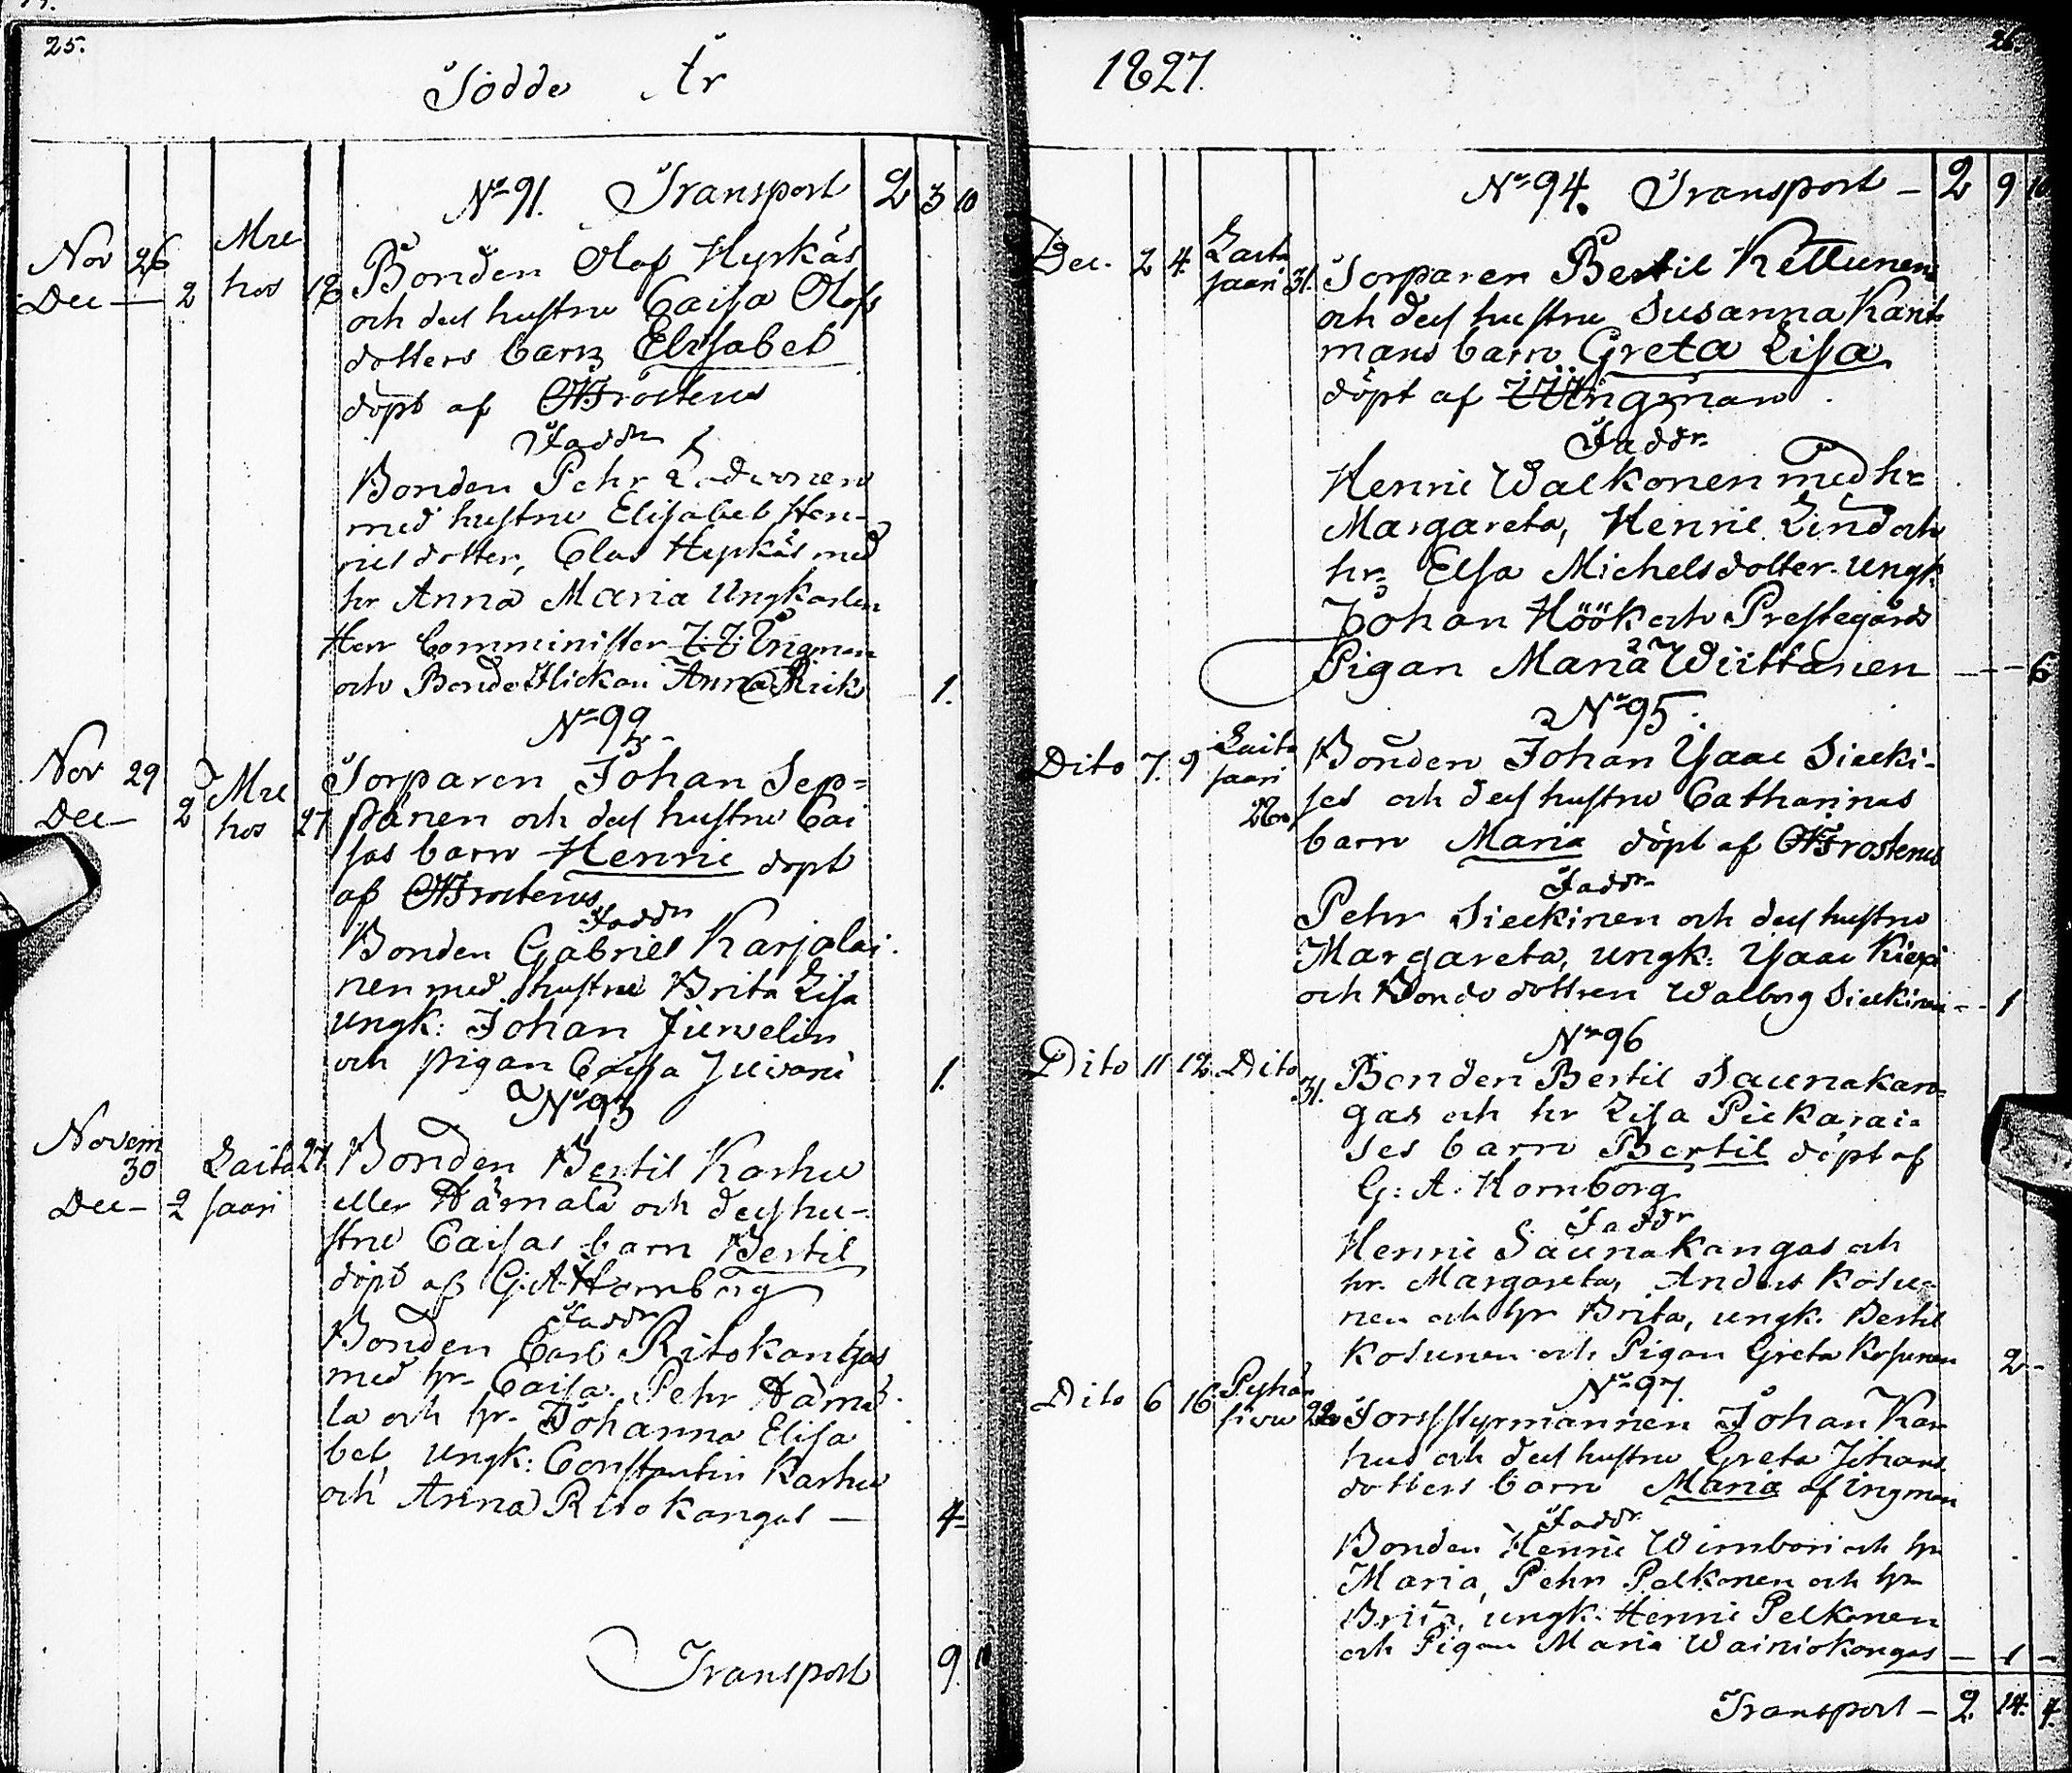 25.
Födde År
No 91. Transport 2 3 10
Nov 26 Mue
Dec — 2 hos 18 Bonden Olof Hyrkäs
och dess hustru Caisa Olofs
dotters barn Elisabet
döpt af Frosterus
Faddr
Bonden Pehr
med hustru Elisabet Hen-
ricsdotter, Clas Hyrkäs med
hr Anna Maria Ungkarlen
Herr Comminister J. J. Ingman
och Bonde Flickan Anna 1.
No 92
Nov 29 Torparen Johan Sep=
Dec — 2 Mue hos 27 pänen och dess hustru Cai
sas barn Henric döpt
af Frosterus
Faddr
Bonden Gabriel Karjalai-
nen med hustru Brita Lisa
ungk: Johan Juwelin
och pigan Caisa Juwani 1.
No 93
Novem
30 Laita 27 Bonden Bertil Karhu
Dec — 2 saari eller Hämälä och dess hu-
stru Caisas barn Bertil
döpt af G. A. Hornborg
Faddr
Bonden Carl Ritokangas
med hr Caisa. Pehr Hämä-
la och hr. Johanna Elisa
bet ungk: Constantin Karhu
och Anna Ritokangas — 4
Transport 9. 10
26.
1827.
No 94. Transport — 2 9 10
Dec. 2 4. Laita
saari 31. Torparen Bertil Kettunen
och dess hustru Susanna Kant
mans barn Greta Lisa
döpt af J. J. Ingman
Faddr
Henric Walkonen med hr
Margareta, Henric Lind och
hr Elsa Michelsdotter. Ungk.
Johan Höök och Prestegårds
Pigan Maria Wiittanen — — 6
No 95.
Dito 7. 9 Laita
saari Bonden Johan Isaac Siecki-
ses och dess hustru Catharinas
barn Maria döpt af Frosterus
Faddr
Pehr Sieckinen och dess hustru
Margareta, ungk: Isaac Kiexi
och Bondedottren Walborg Sieckinen — 1
No 96
Dito 11 12. Dito 31. Bonden Bertil Saunakan=
gas och hr Lisa Pickarai=
ses barn Bertil döpt af
G: A. Hornborg
Faddr
Henric Saunakangas och
hr. Margareta, Anders Kosu=
nen och hr Brita, ungk. Bertil
Kosunen och Pigan Greta Kosunen 2 —
No 97.
Dito 6 16. Pyhän
sivu 22 Forsstyrmannen Johan Kar
hus och dess hustru Greta Johans
dotters barn Maria af Ingman
Faddr
Bonden Henric Wimbari och hr
Maria, Pehr Pelkonen och hr
Brita, ungk. Henric Pelkonen
och Pigan Maria Wainiokangas — 1 —
Transport — 2. 14. 4.